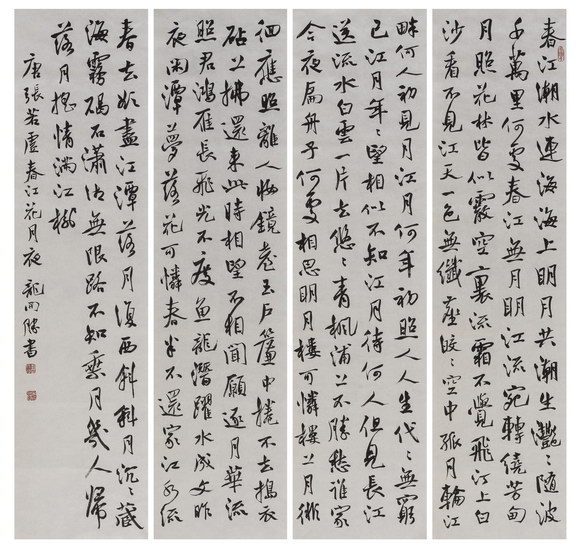 春江潮水連海海上明月共潮生灩〻隨波
千萬里何處春江無月明江流宛轉繞芳甸
月照花林皆似霰空裏流霜不覺飛汀上白
沙看不見江天一色無纖塵皎〻空中孤月輪江
畔何人初見月江月何年初照人人生代〻無窮
已江月年〻望相似不知江月待何人但見長江
送流水白雲一片去悠〻青楓浦上不勝愁誰家
今夜扁舟子何處相思明月樓可憐樓上月徘
徊應照離人妝鏡臺玉戶簾中捲不去擣衣
砧上拂還來此時相望不相聞願逐月華流
照君鴻雁長飛光不度魚龍潛躍水成文昨
夜閑潭夢落花可憐春半不還家江水流
春去欲盡江潭落月復西斜斜月沉〻藏
海霧碣石瀟湘無限路不知乘月幾人歸
落月搖情滿江樹
唐張若虛春江花月夜 龍開勝書